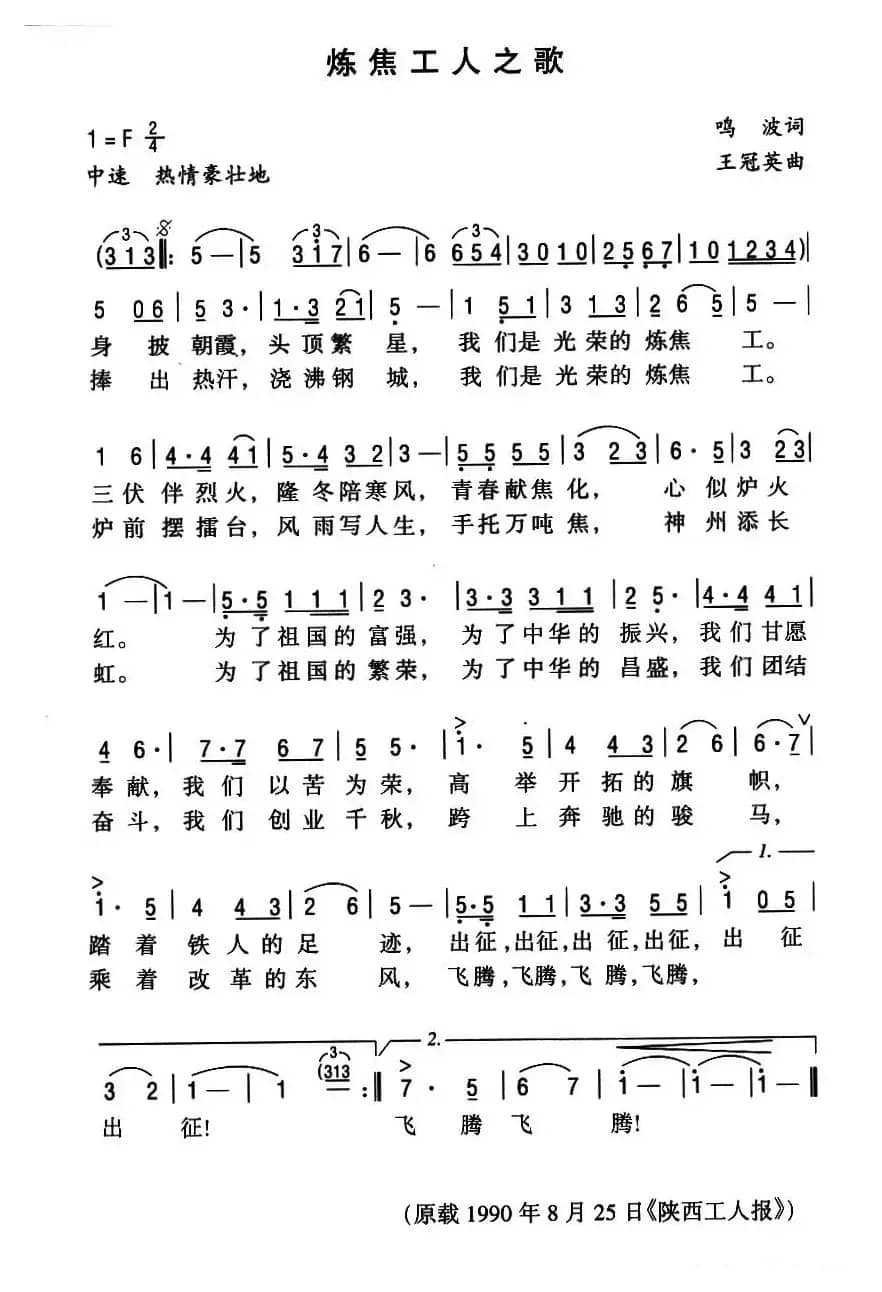 炼焦工人之歌
1=F 2/4
鸣 波词
中速 热情豪壮地
王冠英曲
(313‖: 5—|5 317|6—|6 654|3010|2567|10 1234)|
5 06|5 3·|1·3 21|5—|1 51|3 13|2 6 5|5—|
身 披 朝霞,头 顶 繁 星, 我 们是 光 荣的 炼焦 工。
捧 出 热汗,浇 沸 钢 城, 我 们是 光 荣的 炼焦 工。
1 6|4·4 41|5·4 32|3—|55 55|3 23|6·5|3 23|
三 伏 伴 烈 火,隆 冬 陪 寒 风,青 春 献 焦 化, 心 似 炉 火
炉 前 摆 擂 台,风 雨 写 人 生,手 托 万 吨 焦, 神 州 添 长
1—|1—|5·5 111|2 3·|3·3 311|2 5·|4·4 41|
红。 为 了 祖 国 的 富 强, 为 了 中 华 的 振 兴,我 们 甘 愿
虹。 为 了 祖 国 的 繁 荣, 为 了 中 华 的 昌 盛,我 们 团 结
4 6·|7·7 67|5 5·|1· 5|4 43|2 6|6·7|
奉 献,我 们 以 苦 为 荣, 高 举 开 拓 的 旗 帜,
奋 斗,我 们 创 业 千 秋, 跨 上 奔 驰 的 骏 马,
1.
1· 5|4 43|2 6|5—|5·5 11|3·3 55|1 05|
踏 着 铁 人 的 足 迹, 出 征,出 征,出 征,出 征, 出 征
乘 着 改 革 的 东 风, 飞 腾,飞 腾,飞 腾,飞 腾,
2.
3 2|1—|1 (313:‖7· 5|6 7|1—|1—|1—‖
出 征! 飞 腾 飞 腾!
(原载1990年8月25日《陕西工人报》)